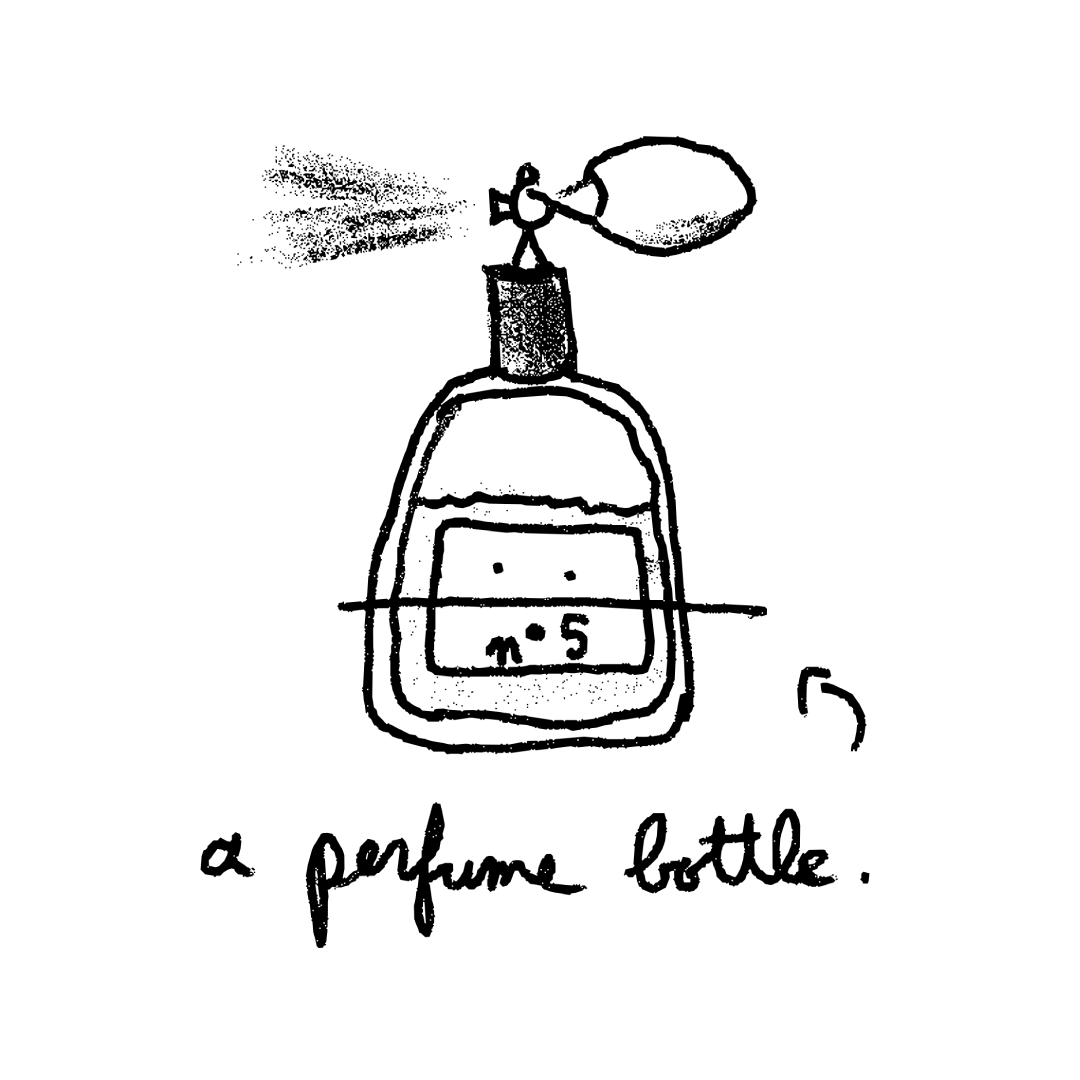 n° 5
a perfume bottle.